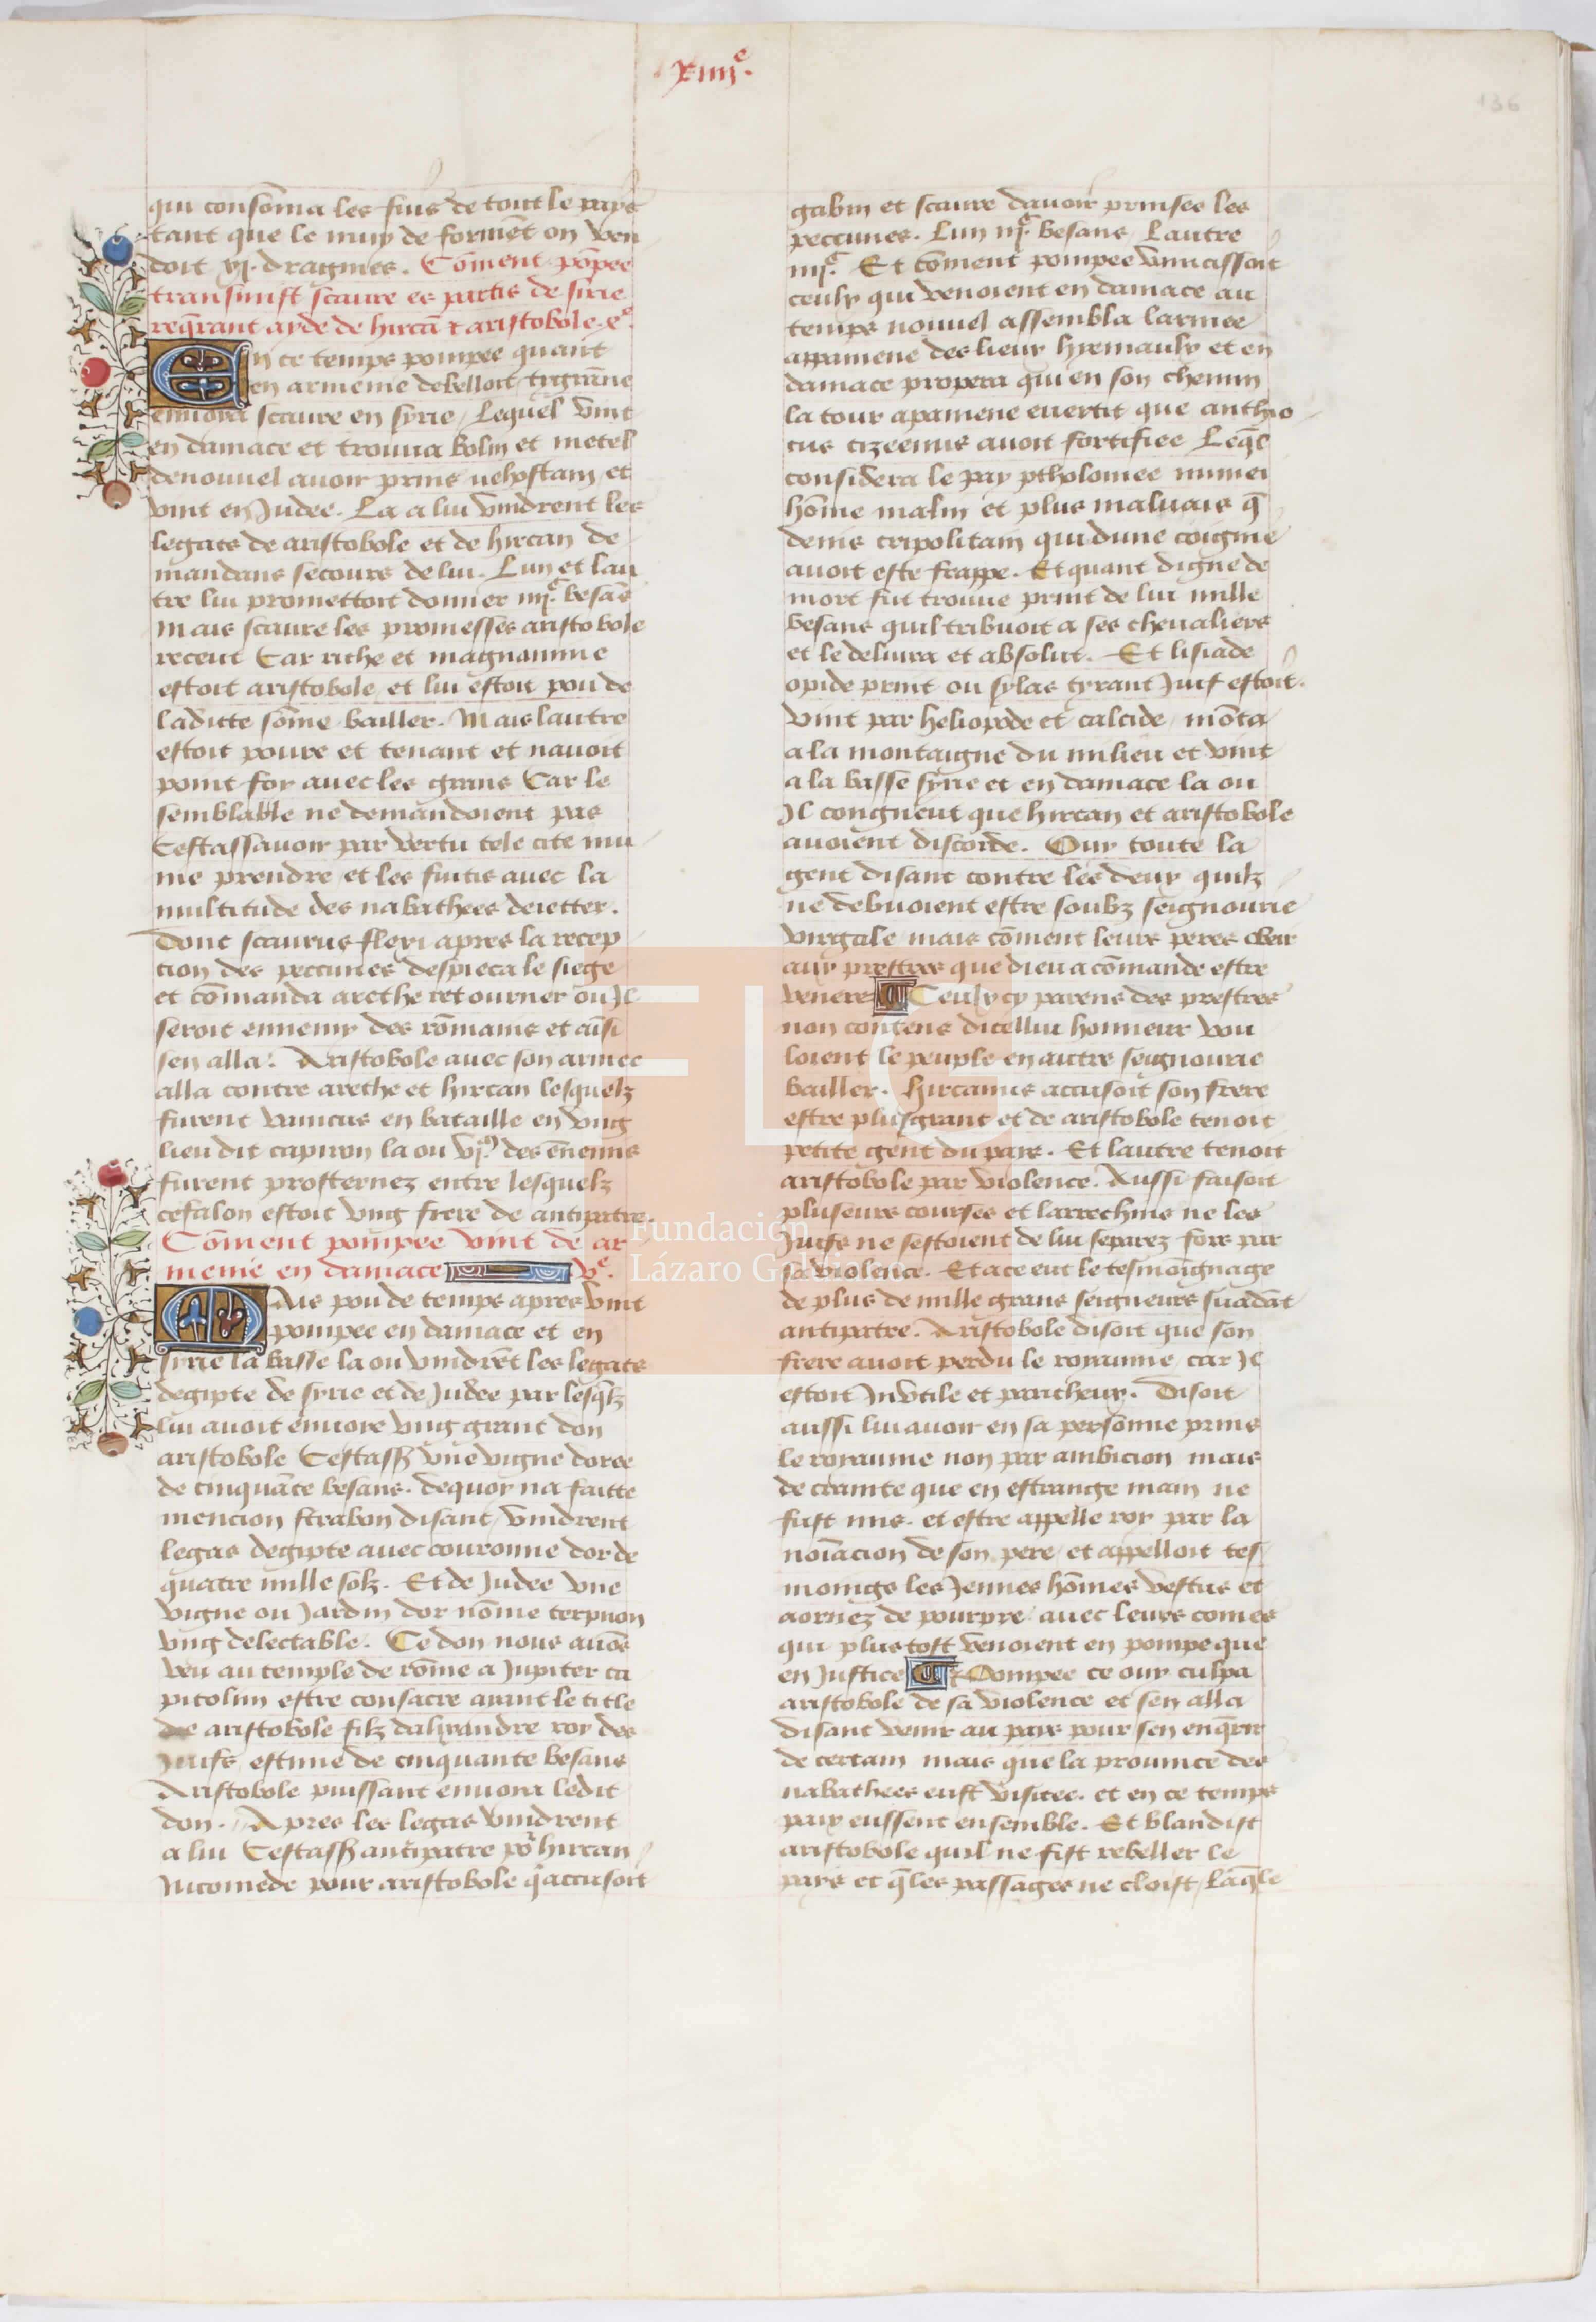 xiiij.e
136
qui consõma les fruis de tout le pays
tant que le muy de formẽt on ven
doit xj. dragmes. Cõment põpee
transmist scaure es partis de sirie
reqrant ayde de hircã & aristobole. e.
En ce temps pompee quant
en armenie debelloit tigrãne
enuoia scaure en syrie, Lequel vint
en damace et trouua bolin et metel
de nouuel auoir prins et
vint en Judee. La a lui vindrent les
legats de aristobole et de hircan de
mandans secours de lui. Lun et lau
tre lui promettoit donner iiij.c besãs
Mais scaure les promesses aristobole
receut Car riche et magnanime
estoit aristobole, et lui estoit pou de
ladicte sõme bailler. Mais lautre
estoit poure et tenant et nauoit
point for auec les grans Car le
semblable ne demandoient pas
Cestassauoir par vertu tele cite mu
nie prendre et les fuitis auec la
multitude des nabathees deietter.
Donc scaurus flexi apres la recep
cion des peccunes despieca le siege
et cõmanda arethe retourner ou Jl
seroit ennemy des rõmains et aĩsi
sen alla. Aristobole auec son armee
alla contre arethe et hircan lesquelz
furent vaincus en bataille en vng
lieu dit capiron la ou vj.m des ẽnemis
furent prosternez entre lesquelz
cefalon estoit vng frere de antipatre.
Cõment pompee vint de ar
menie en damace v.e
Mais pou de temps apres vint
pompee en damace et en
sirie la basse la ou vindrẽt les legats
degipte de syrie et de Judee par lesqlz
lui auoit enuoie vng grant don
aristobole Cestass vne vigne doree
de cinquãte besans. dequoy na faitte
mencion strabon disant, vindrent
legas degipte auec couronne dor de
quatre mille solz. Et de Judee vne
vigne ou Jardin dor nõme terpnon
vng delectable. Ce don nous auõs
veu au temple de rõme a Jupiter ca
pitolin estre consacre aiant le title
de aristobole filz dalixandre roy des
Juifs, estime de cinquante besans
Aristobole puissant enuoia ledit
don. Apres les legas vindrent
a lui Cestass antipatre põ hircan
Nicomede pour aristobole q accusoit
gabin et scaure dauoir prinses les
peccunes. Lun iij.c besans, Lautre
iiij.c Et cõment pompee
ceulx qui venoient en damace au
temps nouuel assembla larmee
appamene des lieux hiemaulx et en
damace propera qui en son chemin
la tour apamene euertit que anthio
cus cizeenus auoit fortifiee Leql
considera le pay ptholomee minei
hõme malin et plus maluais q
denis tripolitain qui dune coignie
auoit este frappe. Et quant digne de
mort fut trouue print de lui mille
besans quil tribuoit a ses cheualiers
et le deliura et absolut. Et lisiade
opide print ou sylas tyrant Juif estoit.
vint par heliopode et calcide, mõta
a la montaigne du milieu et vint
a la basse syrie et en damace la ou
Jl congneut que hircan et aristobole
auoient discorde. Ouy toute la
gent disant contre les deux quilz
ne debuoient estre soubz seignourie
virgale mais cõment leurs peres obeir
aux prestres que dieu a cõmande estre
venerez Ceulx cy parens des prestres
non contens dicellui honneur vou
loient le peuple en autre seignourie
bailler. Hircanus accusoit son frere
estre plusgrant et de aristobole tenoit
petite gent du pais. Et lautre tenoit
aristobole par violence. Aussi faisoit
pluseurs courses et larrechins ne les
Juifs ne sestoient de lui separez fors par
sa violence. Et a ce eut le tesmoignage
de plus de mille grans seigneurs suadãt
antipatre. Aristobole disoit que son
frere auoit perdu le royaume, car Jl
estoit Jnutile et paicheux. Disoit
aussi lui auoir en sa personne prins
le royaume non par ambicion mais
de crainte que en estrange main ne
fust mis. et estre appelle roy par la
noĩacion de son pere, et appelloit tes
moings les Jennes hõmes vestus et
aornez de pourpre auec leurs comes
qui plus tost venoient en pompe que
en Justice Pompee ce ouy culpa
aristobole de sa violence et sen alla
disant venir au pais pour sen enqrir
de certain mais que la prouince des
nabathees eust visitee. et en ce temps
paix eussent ensemble. Et blandist
aristobole quil ne fist rebeller le
pays et q les passages ne cloist, laqle
Fundación
Lázaro Galdiano